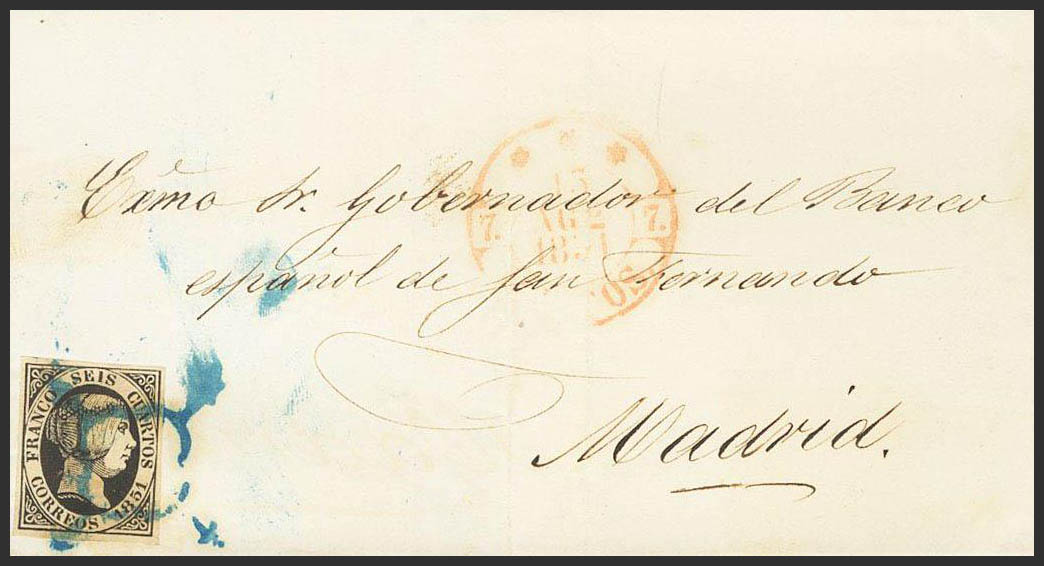 13
7. AG.º 7.
1851
OS.
Exmo Sr. Gobernador del Banco
español de San Fernando
Madrid.
FRANCO SEIS CUARTOS
CORREOS 1851